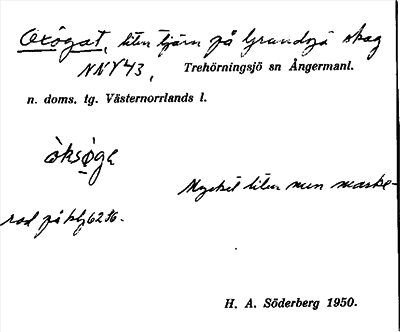 Oxögat, liten tjärn på Grundsjö skog
NNV 43, Trehörningsjö sn Ångermanl.
n. doms. tg. Västernorrlands l.
òksø̀ga
Mycket liten men marke-
rad på
H. A. Söderberg 1950.